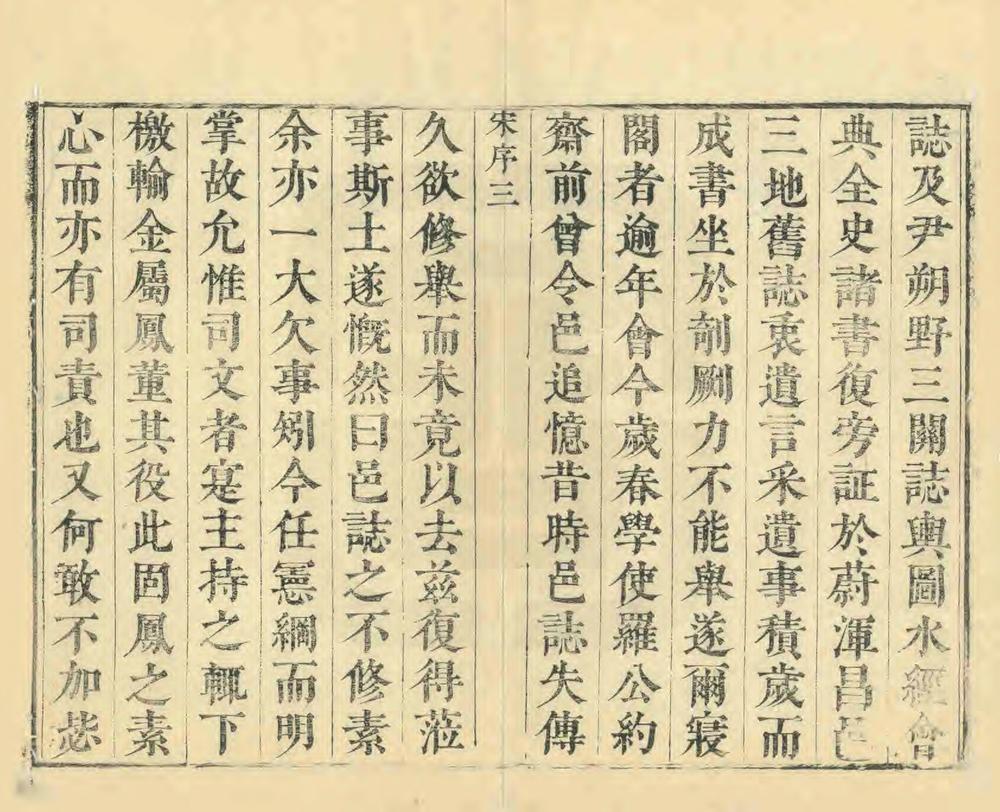 誌及尹朔野三關誌輿圖水經會
典全史諸書復旁証於蔚渾昌邑
三地舊誌裒遺言采遺事積歲而
成書坐於剞劂力不能舉遂爾寢
閣者逾年會今歲春學使羅公約
齋前曾令邑追憶昔時邑誌失傳
宋序三
久欲修舉而未竟以去兹復得蒞
事斯土遂慨然曰邑誌之不修素
余亦一大欠事矧今任憲綱而明
掌故允惟司文者寔主持之輒下
檄輸金屬鳳董其役此固鳳之素
心而亦有司責也又何敢不加毖